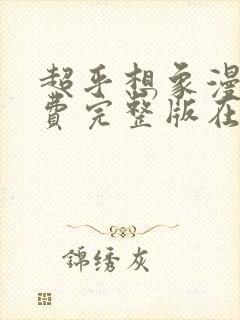 超乎想象漫
费完整版在
錦绣灰